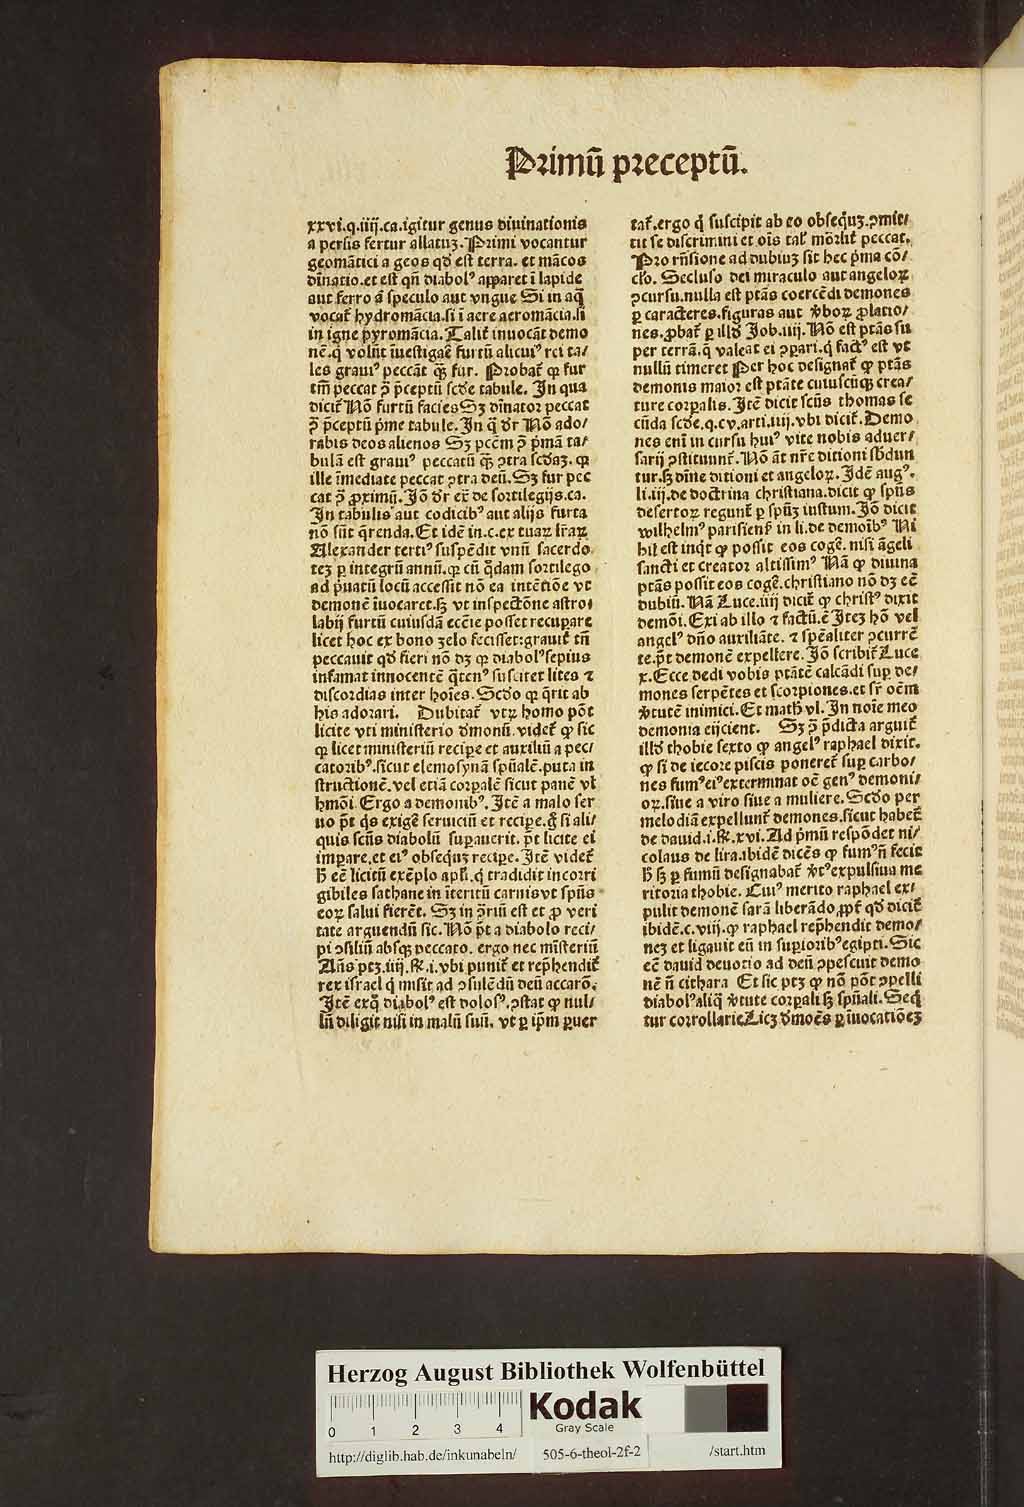 Primū preceptū.
xxvi.q.iiij.ca.igitur genus diuinationis
a persis fertur allatuꝫ. Primi vocantur
geomātici a geos qđ est terra. et mācos
dīnatio. et est qñ diabolꝰ apparet ī lapide
aut ferro ā speculo aut vngue Si in aq̄
vocat᷑ hydromācia. si ī aere aeromācia. si
in igne pyromācia. Talit᷑ inuocāt demo
nē. q̇ volūt īuestigaē furtū alicuiꝰ rei ta/
les grauiꝰ peccāt qꝫ̄ fur. Probat᷑ ꝙ fur
tm̄ peccat ꝯ̄ p̄ceptū scđe tabule. In qua
dicit᷑ Nō furtū facies Sꝫ dīnator peccat
ꝯ̄ p̄ceptū p̄me tabule. In q̄ đr Nō ado/
rabis deos alienos Sꝫ pctm̄ ꝯ̄ p̄mā ta/
bulā est grauiꝰ peccatū qꝫ̄ ꝯtra scđaꝫ. ꝙ
ille īmediate peccat ꝯtra deū. Sꝫ fur pec
cat ꝯ̄ ꝓximū. Jō đr ex̄ de sortilegijs. ca.
In tabulis aut codicibꝰ aut alijs furta
nō sūt q̄renda. Et idē in. c. ex tuaꝝ lr̄aꝝ
Alexander tertiꝰ suspēdit vnū sacerdo
teꝫ ꝑ integrū annū. ꝙ cū q̇dam sortilego
ad p̄uatū locū accessit nō ea intētiōe vt
demonē īuocaret. sꝫ vt inspectōne astro/
labij furtū cuiusdā eccīe posset recuꝑare
licet hoc ex bono zelo fecisset: grauit᷑ tñ
peccauit qđ fieri nō dꝫ ꝙ diabolꝰ sepius
infamat innocentē q̄tenꝰ suscitet lites ⁊
discordias inter hoīes. Scđo ꝙ q̄rit ab
his adorari. Dubitat᷑ vtꝝ homo pōt
licite vti ministerio đmonū. videt᷑ ꝙ sic
ꝙ licet ministeriū recipe et auxiliū a pec/
catoribꝰ. sicut elemosynā spūalē. puta in
structionē. vel etiā corꝑalē sicut panē vl᷑
hmōi. Ergo a demonibꝰ. Itē a malo ser
uo p̄t q̇s exigē seruiciū et recipe. ḡ si ali/
quis scūs diabolū suꝑauerit. p̄t licite ei
impare. et eiꝰ obsequꝫ recipe. Itē videt᷑
ħ eē licitū exēplo apl̄i. q̇ tradidit incorri
gibiles sathane in īteritū carnis vt spūs
eoꝝ salui fierēt. Sꝫ in ꝯ̄riū est et ꝓ veri
tate arguendū sic. Nō p̄t a diabolo reci/
pi ꝯsiliū absqꝫ peccato. ergo nec mīsteriū
Añs ptꝫ. iiij. R̃. i. vbi punit᷑ et rep̄hendit᷑
rex israel q̇ misit ad ꝯsulēdū deū accarō.
Itē exq̇ diabolꝰ est dolosꝰ. ꝯstat ꝙ nul/
lū diligit nisi in malū suū. vt ꝑ ip̄m ꝑuer
tat᷑. ergo q̇ suscipit ab eo obsequꝫ. ꝯmit/
tit se discrimini et oīs tal᷑ mōrlit᷑ peccat.
Pro rñsione ad dubiuꝫ sit hec p̄ma cō/
clo᷑. Secluso dei miraculo aut angeloꝝ
ꝯcursu. nulla est ptās coercēdi demones
ꝑ caracteres. figuras aut v̄boꝝ ꝓlatio/
nes. ꝓbat᷑ ꝑ illđ Job. iiij. Nō est ptās su
per terrā. q̄ valeat ei ꝯꝑari. q̇ factꝰ est vt
nullū timeret Per hoc designat᷑ ꝙ ptās
demonis maior est ptāte cuiuscūqꝫ crea/
ture corꝑalis. Itē dicit scūs thomas se
cūda scđe. q. cv. arti. iiij. vbi dicit. Demo
nes enī in cursu huiꝰ vite nobis aduer/
sarij ꝯstituunt᷑. Nō āt nr̄e ditioni sb̄dun
tur. sꝫ dīne ditioni et angeloꝝ. Idē augꝰ.
li. iij. de doctrina christiana. dicit ꝙ spūs
desertoꝝ regunt᷑ ꝑ spūꝫ iustum. Jō dicit
wilhelmꝰ parisienſ in li. de demoībꝰ Ni
hil est inq̇t ꝙ possit eos cogē. nisi āgeli
sancti et creator altissimꝰ Nā ꝙ diuina
ptās possit eos cogē. christiano nō dꝫ eē
dubiū. Nā Luce. iiij dicit᷑ ꝙ christꝰ dixit
demōi. Exi ab illo ⁊ factū. ē Iteꝫ hō vel
angelꝰ dño auxiliāte. ⁊ spēaliter ꝯcurrē
te. p̄t demonē expellere. Jō scribit᷑ Luce
x. Ecce dedi vobis ptātē calcādi suꝑ de/
mones serpētes et scorpiones. et sr̄ oēm
v̄tutē inimici. Et math̄ vl. In noīe meo
demonia eijcient. Sꝫ ꝯ̄ p̄dicta arguit᷑
illđ thobie sexto ꝙ angelꝰ raphael dixit.
ꝙ si de iecore piscis poneret᷑ suꝑ carbo/
nes fumꝰ eiꝰ exterminat oē genꝰ demoni/
oꝝ. siue a viro siue a muliere. Scđo per
melodiā expellunt᷑ demones. sicut habet᷑
de dauid. i. R̃. xvi. Ad p̄mū respōdet ni/
colaus de lira. ibidē dicēs ꝙ fumꝰ ñ fecit
ħ sꝫ ꝑ fumū designabat᷑ v̄tꝰ expulsiua me
ritoria thobie. Cuiꝰ merito raphael ex/
pulit demonē sarā liberādo. ꝓpt᷑ qđ dicit᷑
ibidē. c. viij. ꝙ raphael rep̄hendit demo/
neꝫ et ligauit eū in suꝑioribꝰ egipti. Sic
eē dauid deuotio ad deū ꝯpescuit demo
nē ñ cithara Et sic ptꝫ ꝙ nō pōt ꝯpelli
diabolꝰ aliq̄ v̄tute corꝑali sꝫ spūali. Seq̇
tur corrollarie Licꝫ đmoēs ꝑ īuocatiōeꝫ
Herzog August Bibliothek Wolfenbüttel
0 1 2 3 4
Kodak
Gray Scale
http://diglib.hab.de/inkunabeln/ 505-6-theol-2f-2 /start.htm